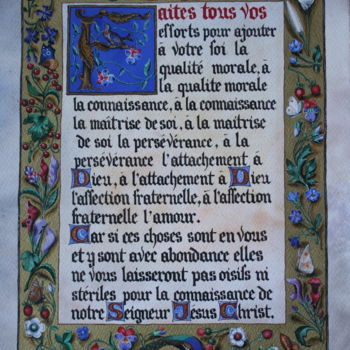 Faites tous vos
efforts pour ajouter
à votre foi la
qualité morale, à
la qualité morale
la connaissance, à la connaissance
la maîtrise de soi, à la maîtrise
de soi la persévérance, à la
persévérance l'attachement à
Dieu, à l'attachement à Dieu
l'affection fraternelle, à l'affection
fraternelle l'amour.
Car si ces choses sont en vous
et y sont avec abondance elles
ne vous laisseront pas oisifs ni
stériles pour la connaissance de
notre Seigneur Jésus Christ.